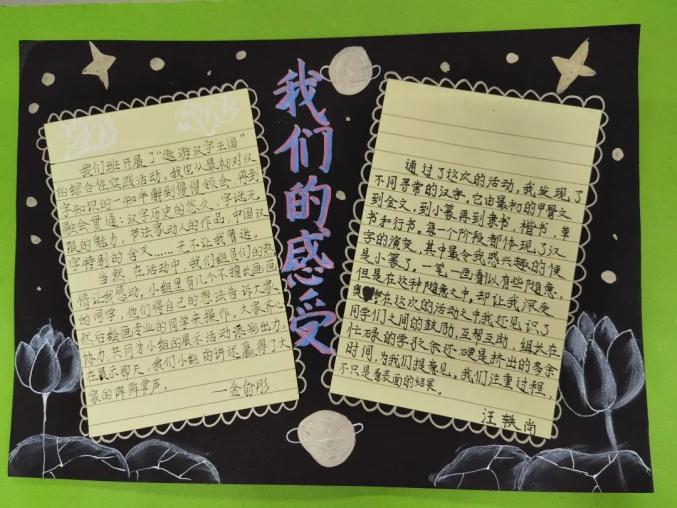 我们的感受
我们班开展了“遨游汉字王国”
的综合性实践活动，我也从最初对汉
字知识的一知半解到慢慢领会，再到
融会贯通：汉字历史的悠久，字谜无
限的魅力，书法家动人的作品，中国汉
字特别的含义……无不让我着迷。
当然，在活动中，我们组员们的热
情让我感动，小组里有几个不擅长画画
的同学，他们将自己的想法告诉大家，
然后绘画专业的同学去操作。大家齐心
协力，共同为小组的展示活动添彩出力。
在展示那天，我们小组的讲述赢得了大
家的阵阵掌声。
——金俞彤
通过了这次的活动，我发现了
不同寻常的汉字，它由最初的甲骨文
到金文，到小篆再到隶书，楷书，草
书和行书。每一个阶段都体现了汉
字的演变，其中最令我感兴趣的便
是小篆了。一笔一画看似有些随意，
但是在这种随意之中，却让我深受
在这次的活动之中我还见识了
同学们之间的鼓励，互帮互助，组长在
忙碌的学校余还硬是挤出的多余
时间，为我们提意见。我们注重过程，
不只是看表面的结果。
汪轶尚